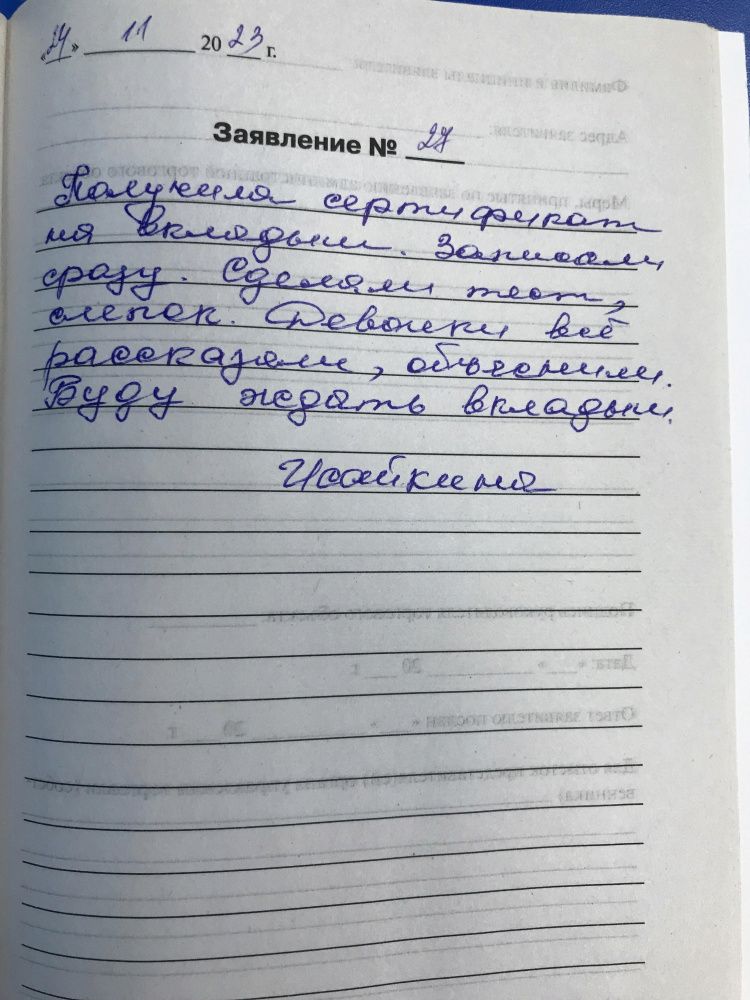 «27» 11 2023 г.
Заявление № 27
Получила сертификат
на вкладыш. Записали
сразу. Сделали тест,
слепок. Девочки всё
рассказали, объяснили.
Буду ждать вкладыш.
Исайкина